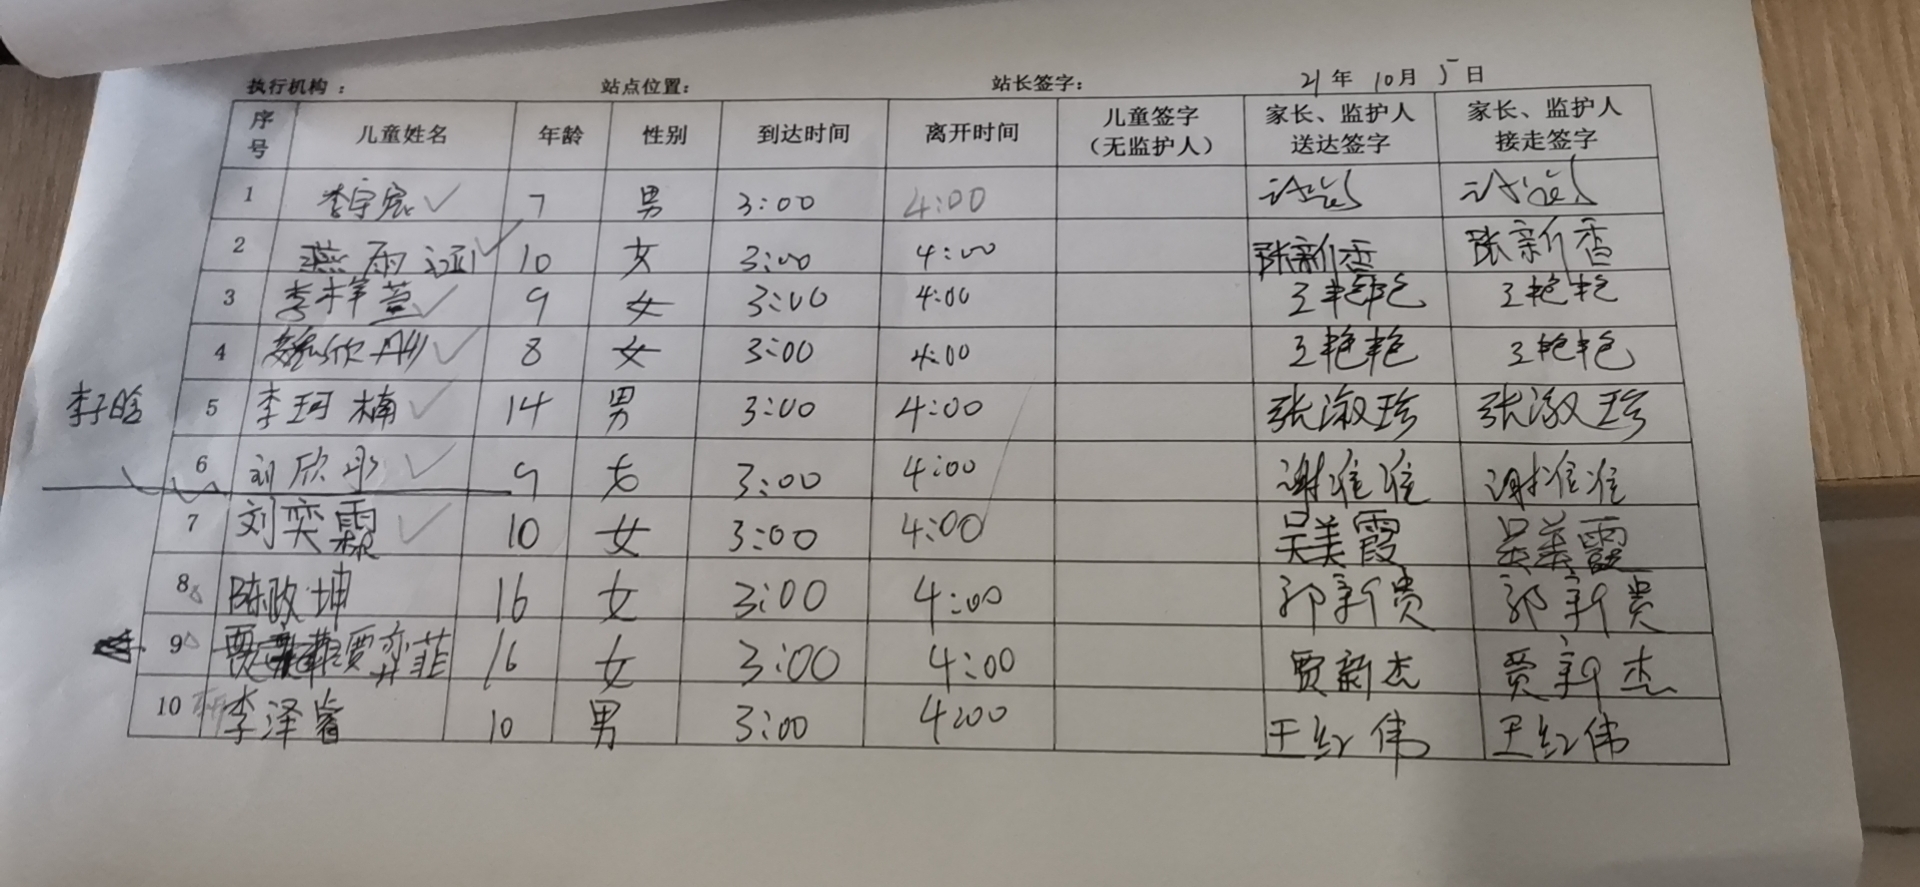 执行机构： 站点位置： 站长签字： 21年 10月 5日
序号 儿童姓名 年龄 性别 到达时间 离开时间 儿童签字（无监护人） 家长、监护人送达签字 家长、监护人接走签字
1 李宇宸 7 男 3:00 4:00
2 燕雨涵 10 女 3:00 4:00 张新香 张新香
3 李梓萱 9 女 3:00 4:00 王艳艳 王艳艳
4 魏欣彤 8 女 3:00 4:00 王艳艳 王艳艳
李子晗 5 李珂楠 14 男 3:00 4:00 张淑珍 张淑珍
6 刘欣彤 9 女 3:00 4:00 谢准准 谢准准
7 刘奕霖 10 女 3:00 4:00 吴美霞 吴美霞
8 陈政坤 16 女 3:00 4:00 郭新贵 郭新贵
9 贾弈菲 16 女 3:00 4:00 贾新杰 贾新杰
10 李泽睿 10 男 3:00 4:00 王红伟 王红伟